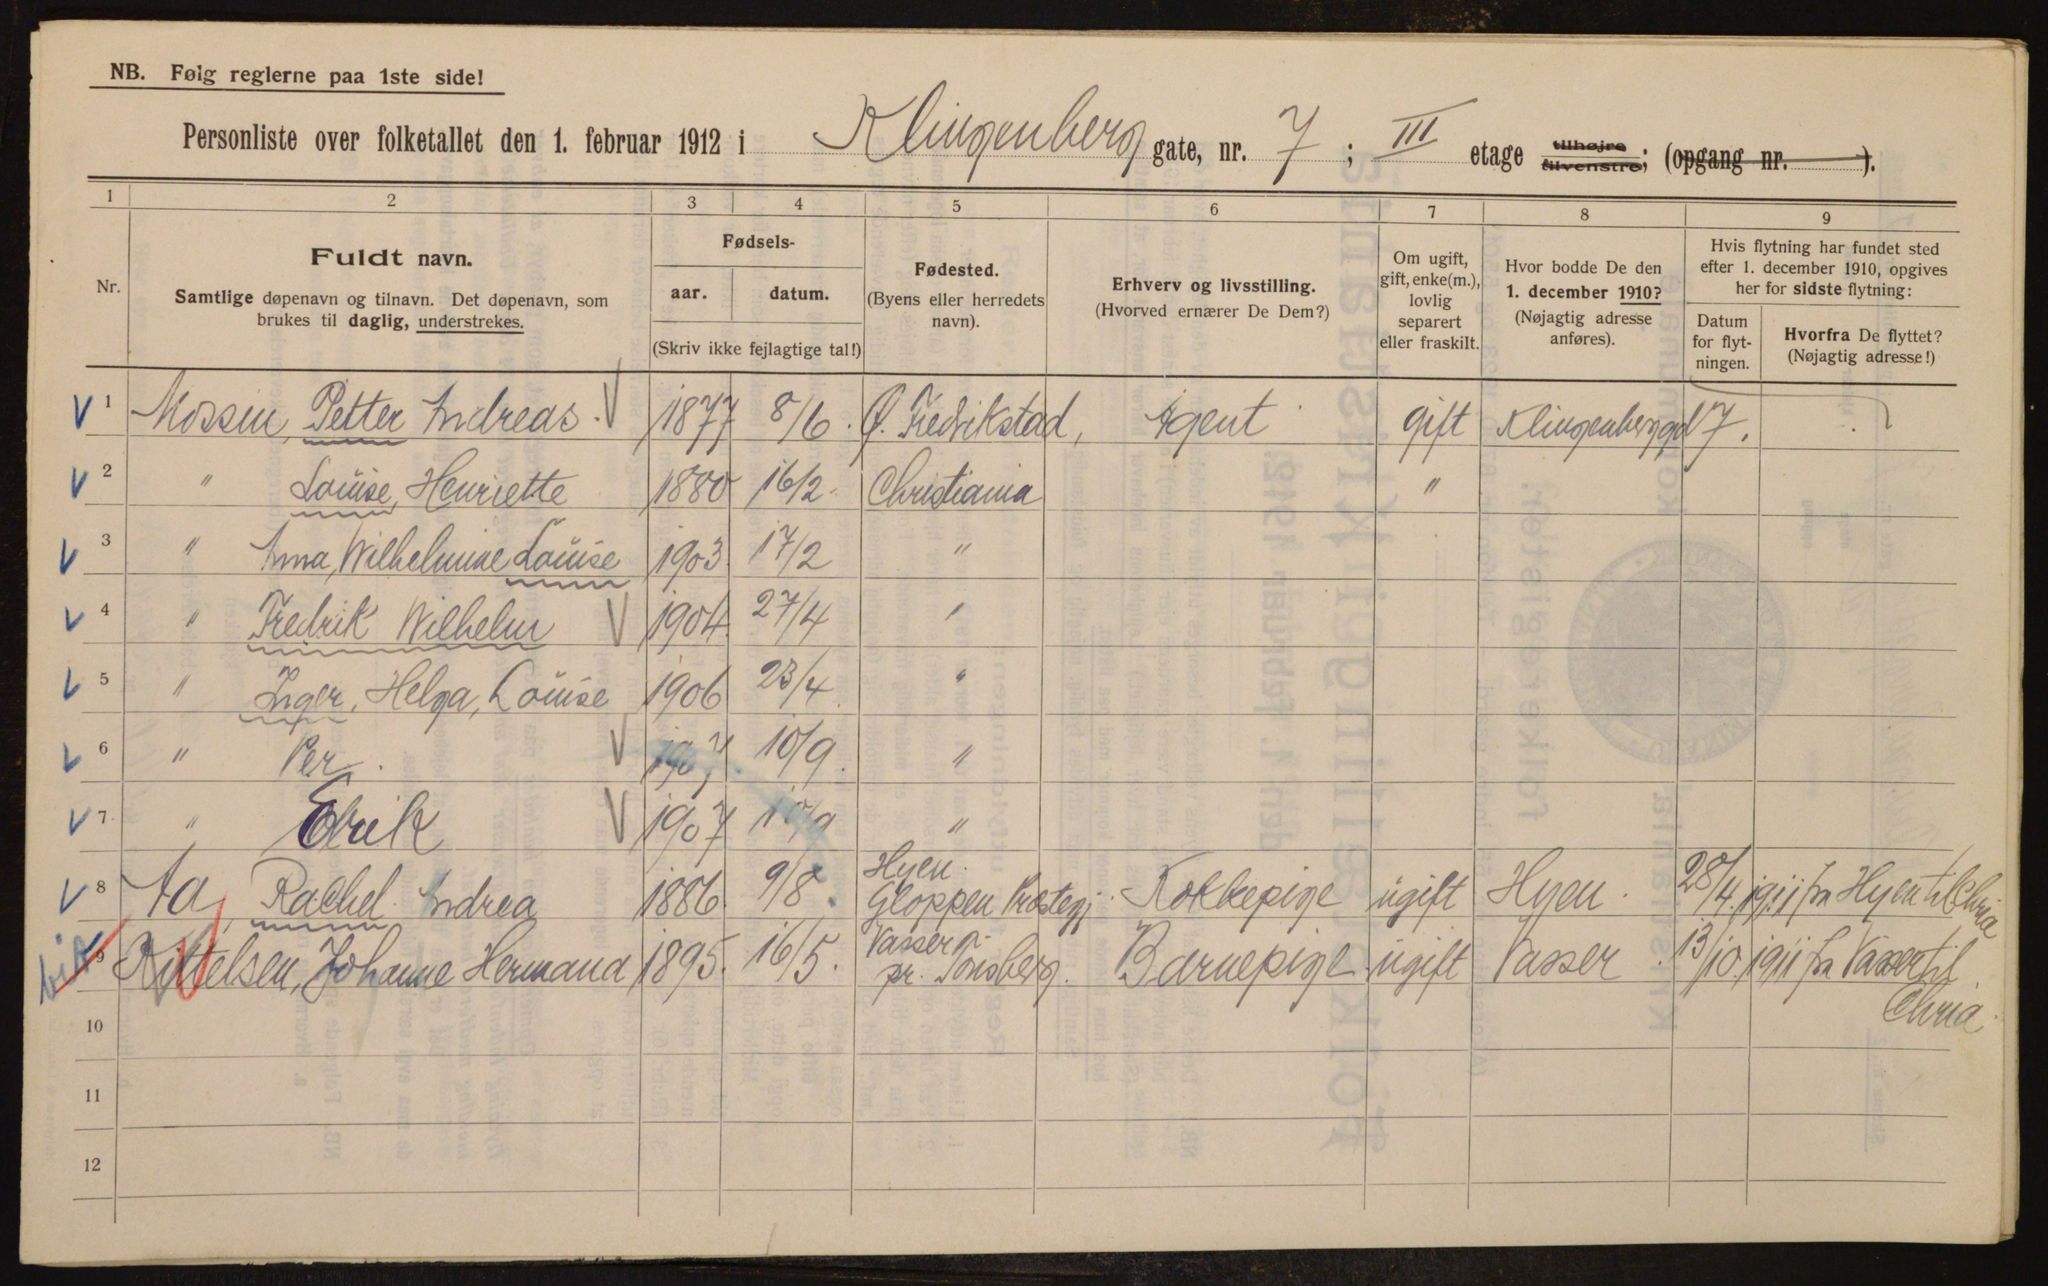 NB. Følg reglerne paa 1ste side!
Personliste over folketallet den 1. februar 1912 i Klingenberg gate, nr. 7; III etage tilhøjre tilvenstre; (opgang nr. ).
1 2 3 4 5 6 7 8 9
Nr.
Fuldt navn.
Samtlige døpenavn og tilnavn. Det døpenavn, som
brukes til daglig, understrekes.
Fødsels-
aar. datum.
(Skriv ikke fejlagtige tal!)
Fødested.
(Byens eller herredets
navn).
Erhverv og livsstilling.
(Hvorved ernærer De Dem?)
Om ugift,
gift, enke(m.),
lovlig
separert
eller fraskilt.
Hvor bodde De den
1. december 1910?
(Nøjagtig adresse
anføres).
Hvis flytning har fundet sted
efter 1. december 1910, opgives
her for sidste flytning:
Datum
for flyt-
ningen.
Hvorfra De flyttet?
(Nøjagtig adresse!)
1 Petter Andreas. 1877 8/6. Ø. Fredrikstad, Agent gift Klingenberggd 7.
2 " Louise, Henriette 1880 16/2. Christiania "
3 " Anna, Wilhelmine Louise 1903. 17/2 "
4 " Fredrik Wilhelm 1904. 27/4 "
5 " Inger, Helga, Louise 1906 23/4 "
6 " Per. 1907. 10/9. "
7 " Erik 1907 10/9 "
8 Aa, Rachel Andrea 1886. 9/8. Hyen.
Gloppen Præstegj. Kokkepige ugift Hyen. 28/4. 1911 fra Hyen til Chria
9 Kittelsen, Johanne Hermana 1895. 16/5. Vasser
pr. Tønsberg. Barnepige ugift Vasser. 13/10. 1911 fra Vasser til
Chria.
10
11
12